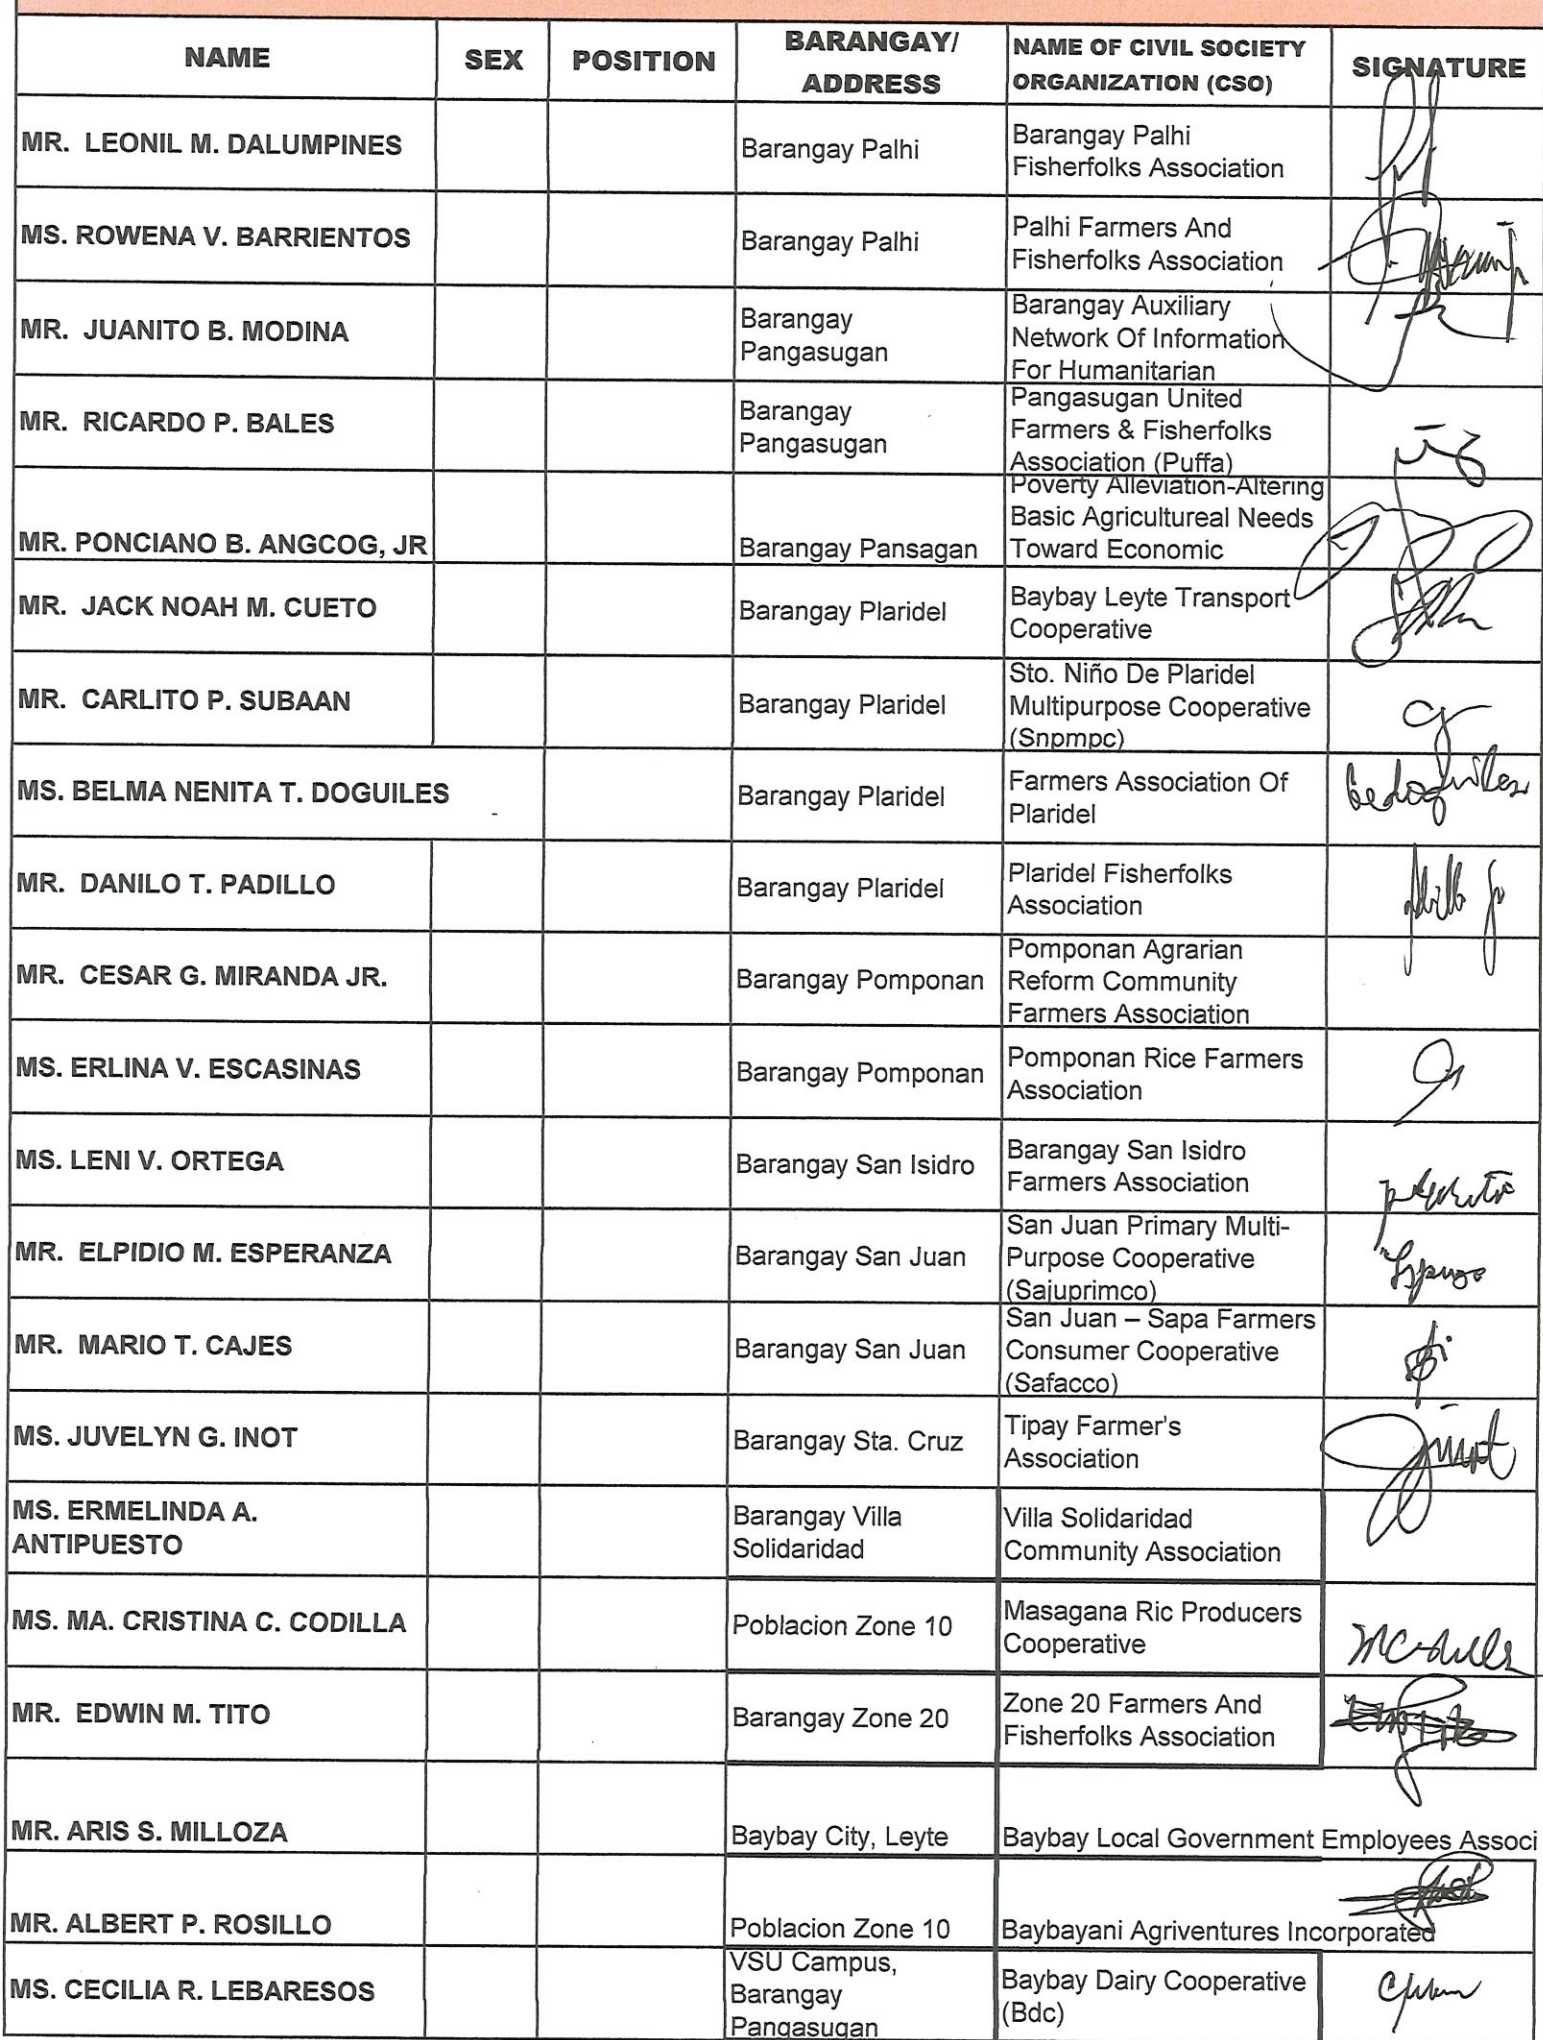 NAME SEX POSITION BARANGAY/ NAME OF CIVIL SOCIETY SIGNATURE
ADDRESS ORGANIZATION (CSO)
MR. LEONIL M. DALUMPINES Barangay Palhi Barangay Palhi
Fisherfolks Association
MS. ROWENA V. BARRIENTOS Barangay Palhi Palhi Farmers And
Fisherfolks Association
MR. JUANITO B. MODINA Barangay Barangay Auxiliary
Pangasugan Network Of Information
For Humanitarian
MR. RICARDO P. BALES Barangay Pangasugan United
Pangasugan Farmers & Fisherfolks
Association (Puffa)
Poverty Alleviation-Altering
Basic Agricultureal Needs
MR. PONCIANO B. ANGCOG, JR Barangay Pansagan Toward Economic
MR. JACK NOAH M. CUETO Barangay Plaridel Baybay Leyte Transport
Cooperative
MR. CARLITO P. SUBAAN Barangay Plaridel Sto. Niño De Plaridel
Multipurpose Cooperative
(Snpmpc)
MS. BELMA NENITA T. DOGUILES Barangay Plaridel Farmers Association Of
Plaridel
MR. DANILO T. PADILLO Barangay Plaridel Plaridel Fisherfolks
Association
MR. CESAR G. MIRANDA JR. Barangay Pomponan Pomponan Agrarian
Reform Community
Farmers Association
MS. ERLINA V. ESCASINAS Barangay Pomponan Pomponan Rice Farmers
Association
MS. LENI V. ORTEGA Barangay San Isidro Barangay San Isidro
Farmers Association
MR. ELPIDIO M. ESPERANZA Barangay San Juan San Juan Primary Multi-
Purpose Cooperative
(Sajuprimco)
MR. MARIO T. CAJES Barangay San Juan San Juan – Sapa Farmers
Consumer Cooperative
(Safacco)
MS. JUVELYN G. INOT Barangay Sta. Cruz Tipay Farmer's
Association
MS. ERMELINDA A. Barangay Villa Villa Solidaridad
ANTIPUESTO Solidaridad Community Association
MS. MA. CRISTINA C. CODILLA Poblacion Zone 10 Masagana Ric Producers
Cooperative
MR. EDWIN M. TITO Barangay Zone 20 Zone 20 Farmers And
Fisherfolks Association
MR. ARIS S. MILLOZA Baybay City, Leyte Baybay Local Government Employees Associ
MR. ALBERT P. ROSILLO Poblacion Zone 10 Baybayani Agriventures Incorporated
MS. CECILIA R. LEBARESOS VSU Campus, Baybay Dairy Cooperative
Barangay (Bdc)
Pangasugan